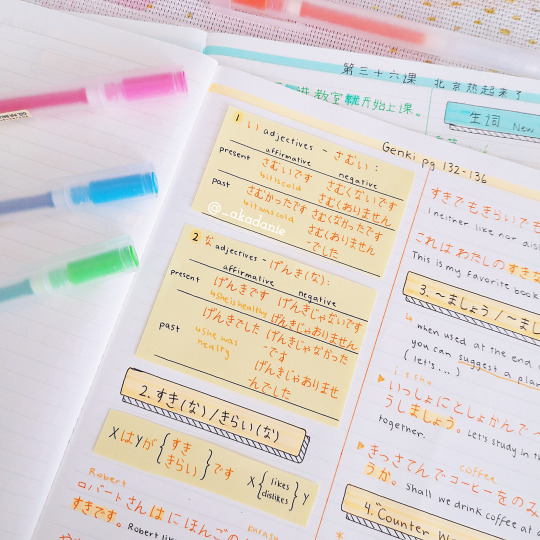 第三十六课 北京热起来了
进教室就开始上课。
生词 New
Genki pg 132-136
1 い adjectives - さむい:
affirmative negative
present さむいです さむくないです
it is cold さむくありません
past さむかったです さむくなかったです
it was cold さむくありません
-でした
@_akadanie
2 な adjectives - げんき(な):
affirmative negative
present げんきです げんきじゃないです
she is healthy げんきじゃありません
past げんきでした げんきじゃなかった
she was -です
healty げんきじゃありませ
-んでした
2. すき(な)/きらい(な)
XはYが{すき きらい}です X{likes dislikes}Y
Robert
ロバートさんはにほんごの
すきです。Robert
すきでもきらいでも
I neither like nor
これはわたしのすきな
This is my favorite book
3. ~ましょう/~まし
when used at the end
you can suggest a plan
(let's...)
いっしょにとしょかんで
うしましょう。Let's study in
together.
coffee
きっさてんでコーヒーをのみ
うか。Shall we drink coffee at a
4. "Counter